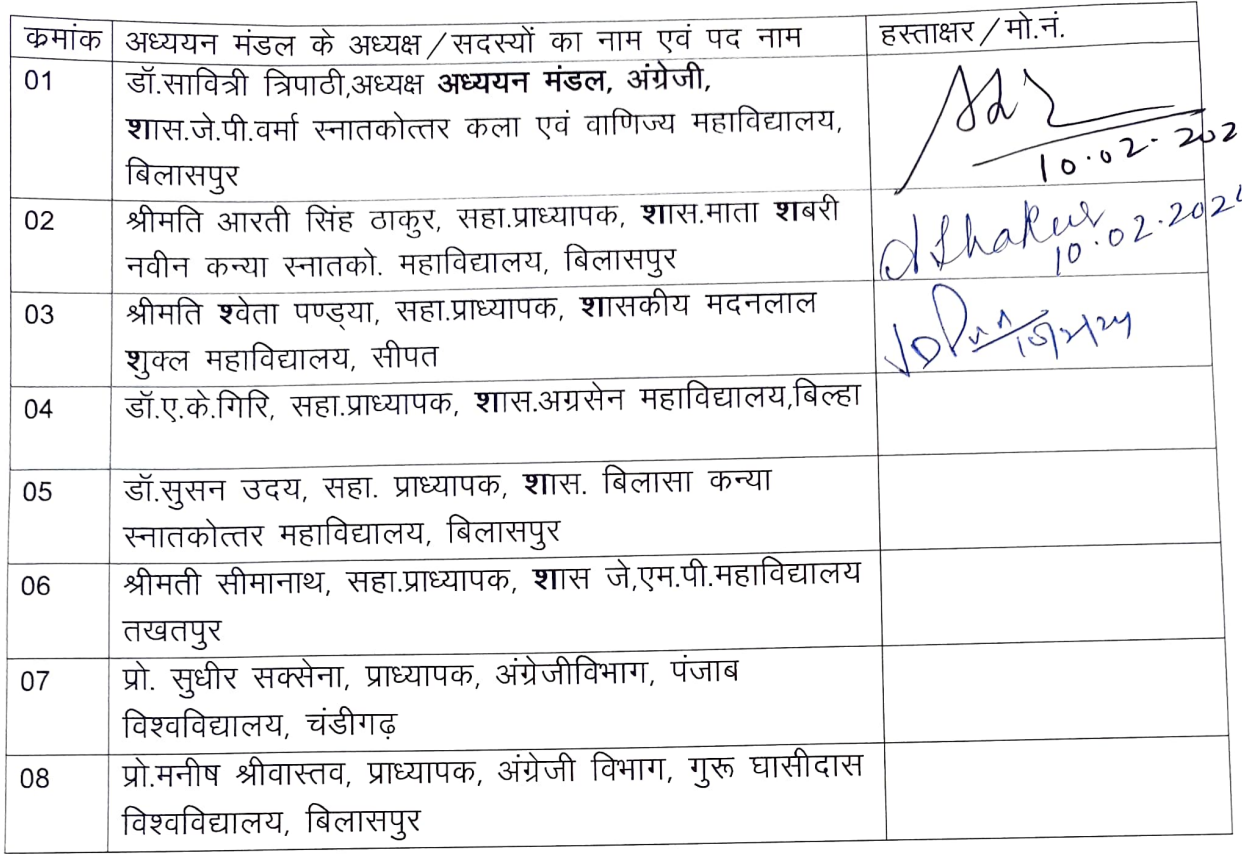 क्रमांक अध्ययन मंडल के अध्यक्ष/सदस्यों का नाम एवं पद नाम हस्ताक्षर/मो.नं.
01 डॉ.सावित्री त्रिपाठी,अध्यक्ष अध्ययन मंडल, अंग्रेजी,
शास.जे.पी.वर्मा स्नातकोत्तर कला एवं वाणिज्य महाविद्यालय,
बिलासपुर
10.02.202
02 श्रीमति आरती सिंह ठाकुर, सहा.प्राध्यापक, शास.माता शबरी
नवीन कन्या स्नातको. महाविद्यालय, बिलासपुर
AThakur
10.02.202
03 श्रीमति श्वेता पण्ड्या, सहा.प्राध्यापक, शासकीय मदनलाल
शुक्ल महाविद्यालय, सीपत
04 डॉ.ए.के.गिरि, सहा.प्राध्यापक, शास.अग्रसेन महाविद्यालय,बिल्हा
05 डॉ.सुसन उदय, सहा. प्राध्यापक, शास. बिलासा कन्या
स्नातकोत्तर महाविद्यालय, बिलासपुर
06 श्रीमती सीमानाथ, सहा.प्राध्यापक, शास जे,एम.पी.महाविद्यालय
तखतपुर
07 प्रो. सुधीर सक्सेना, प्राध्यापक, अंग्रेजीविभाग, पंजाब
विश्वविद्यालय, चंडीगढ़
08 प्रो.मनीष श्रीवास्तव, प्राध्यापक, अंग्रेजी विभाग, गुरू घासीदास
विश्वविद्यालय, बिलासपुर